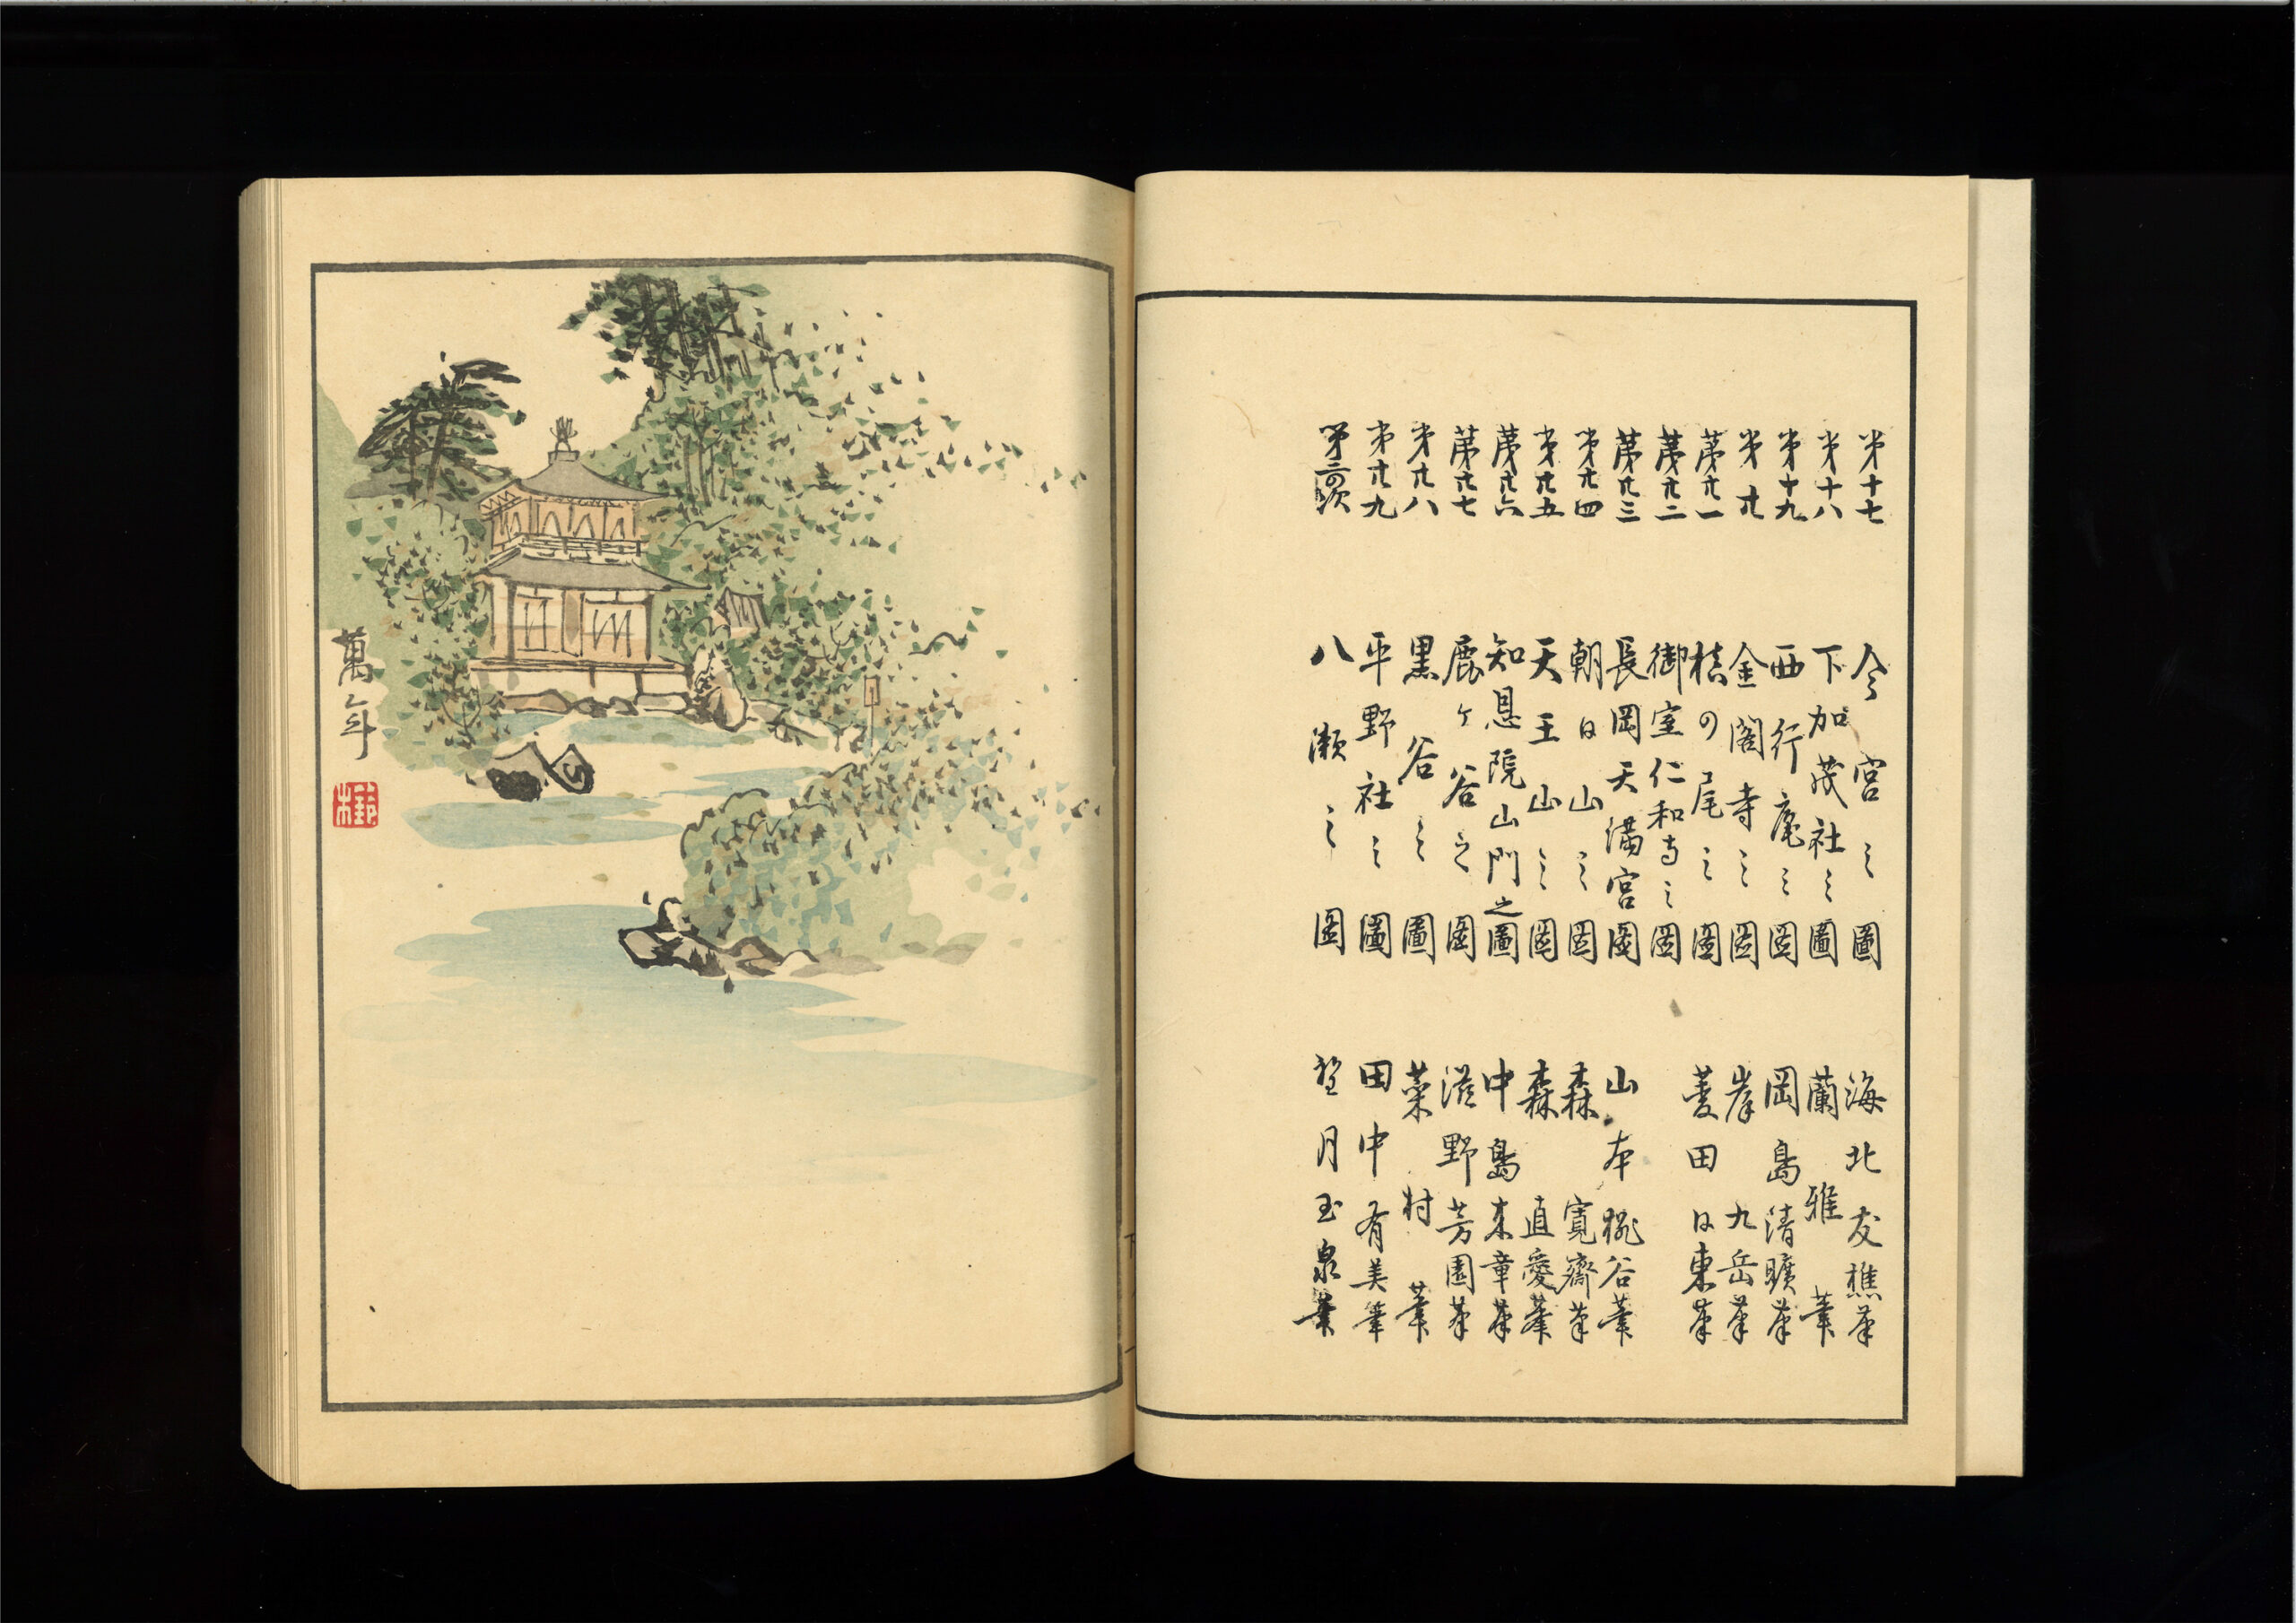 第十七 今宮之圖 海北友樵筆
第十八 下加茂社之圖 蘭雅筆
第十九 西行庵之図 岡島清曠筆
第廿 金閣寺之図 岸九岳筆
第廿一 槙の尾之図 菱田日東筆
第廿二 御室仁和寺之図
第廿三 長岡天満宮図 山本桃谷筆
第廿四 朝日山之図 森寛齋筆
第廿五 天王山之図 森直愛筆
第廿六 知恩院山門之圖 中島来章筆
第廿七 鹿ヶ谷之図 滋野芳園筆
第廿八 黒谷之圖 村筆
第廿九 平野社之圖 田中有美筆
第三 八瀬之図 望月玉泉筆
萬年